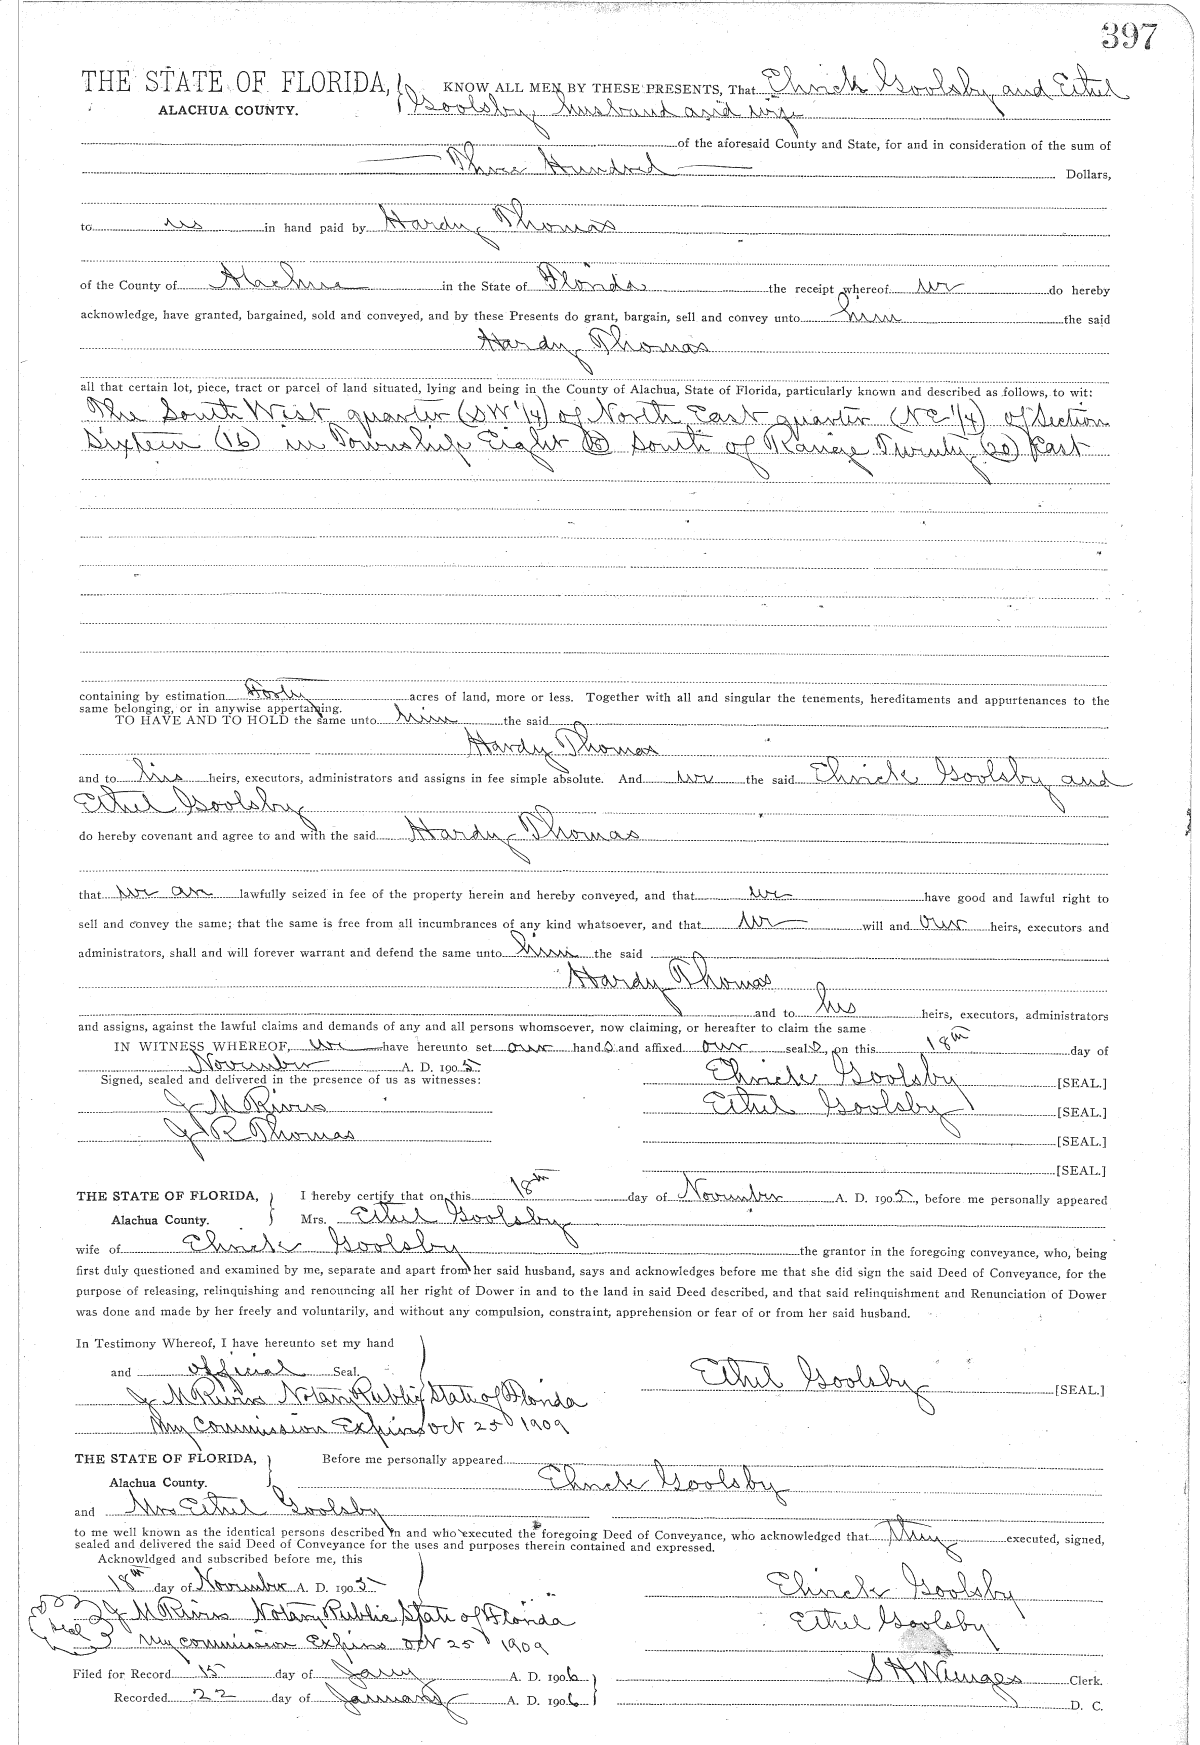 397
THE STATE OF FLORIDA, KNOW ALL MEN BY THESE PRESENTS, That Elrick Goolsby and Ethel
ALACHUA COUNTY. Goolsby, husband and wife
of the aforesaid County and State, for and in consideration of the sum of
Three Hundred Dollars,
to us in hand paid by Hardy Thomas
of the County of Alachua in the State of Florida the receipt whereof we do hereby
acknowledge, have granted, bargained, sold and conveyed, and by these Presents do grant, bargain, sell and convey unto him the said
Hardy Thomas
all that certain lot, piece, tract or parcel of land situated, lying and being in the County of Alachua, State of Florida, particularly known and described as follows, to wit:
The South West quarter (SW 1/4) of North East quarter (NE 1/4) of Section
Sixteen (16) in Township Eight (8) South of Range Twenty (20) East
containing by estimation Forty acres of land, more or less. Together with all and singular the tenements, hereditaments and appurtenances to the
same belonging, or in anywise appertaining.
TO HAVE AND TO HOLD the same unto him the said
Hardy Thomas
and to his heirs, executors, administrators and assigns in fee simple absolute. And we the said Elrick Goolsby and
Ethel Goolsby
do hereby covenant and agree to and with the said Hardy Thomas
that we are lawfully seized in fee of the property herein and hereby conveyed, and that we have good and lawful right to
sell and convey the same; that the same is free from all incumbrances of any kind whatsoever, and that we will and our heirs, executors and
administrators, shall and will forever warrant and defend the same unto him the said
Hardy Thomas
and to his heirs, executors, administrators
and assigns, against the lawful claims and demands of any and all persons whomsoever, now claiming, or hereafter to claim the same
IN WITNESS WHEREOF, we have hereunto set our hands and affixed our seals, on this 18th day of
November A. D. 1905 Elrick Goolsby [SEAL.]
Signed, sealed and delivered in the presence of us as witnesses:
J M Rivis Ethel Goolsby [SEAL.]
J R Thomas [SEAL.]
[SEAL.]
THE STATE OF FLORIDA, I hereby certify that on this 18th day of November A. D. 1905, before me personally appeared
Alachua County. Mrs. Ethel Goolsby
wife of Elrick Goolsby the grantor in the foregoing conveyance, who, being
first duly questioned and examined by me, separate and apart from her said husband, says and acknowledges before me that she did sign the said Deed of Conveyance, for the
purpose of releasing, relinquishing and renouncing all her right of Dower in and to the land in said Deed described, and that said relinquishment and Renunciation of Dower
was done and made by her freely and voluntarily, and without any compulsion, constraint, apprehension or fear of or from her said husband.
In Testimony Whereof, I have hereunto set my hand
and official Seal. Ethel Goolsby [SEAL.]
J M Rivis Notary Public State of Florida
My Commission Expires Oct 25 1909
THE STATE OF FLORIDA, Before me personally appeared
Alachua County. Elrick Goolsby
and Mrs Ethel Goolsby
to me well known as the identical persons described in and who executed the foregoing Deed of Conveyance, who acknowledged that they executed, signed,
sealed and delivered the said Deed of Conveyance for the uses and purposes therein contained and expressed.
Acknowldged and subscribed before me, this
18th day of November A. D. 1905 Elrick Goolsby
Seal J M Rivis Notary Public State of Florida Ethel Goolsby
My commission Expires Oct 25 1909
Filed for Record 15 day of Jany A. D. 1906 S H Wienges Clerk.
Recorded 22 day of January A. D. 1906 D. C.